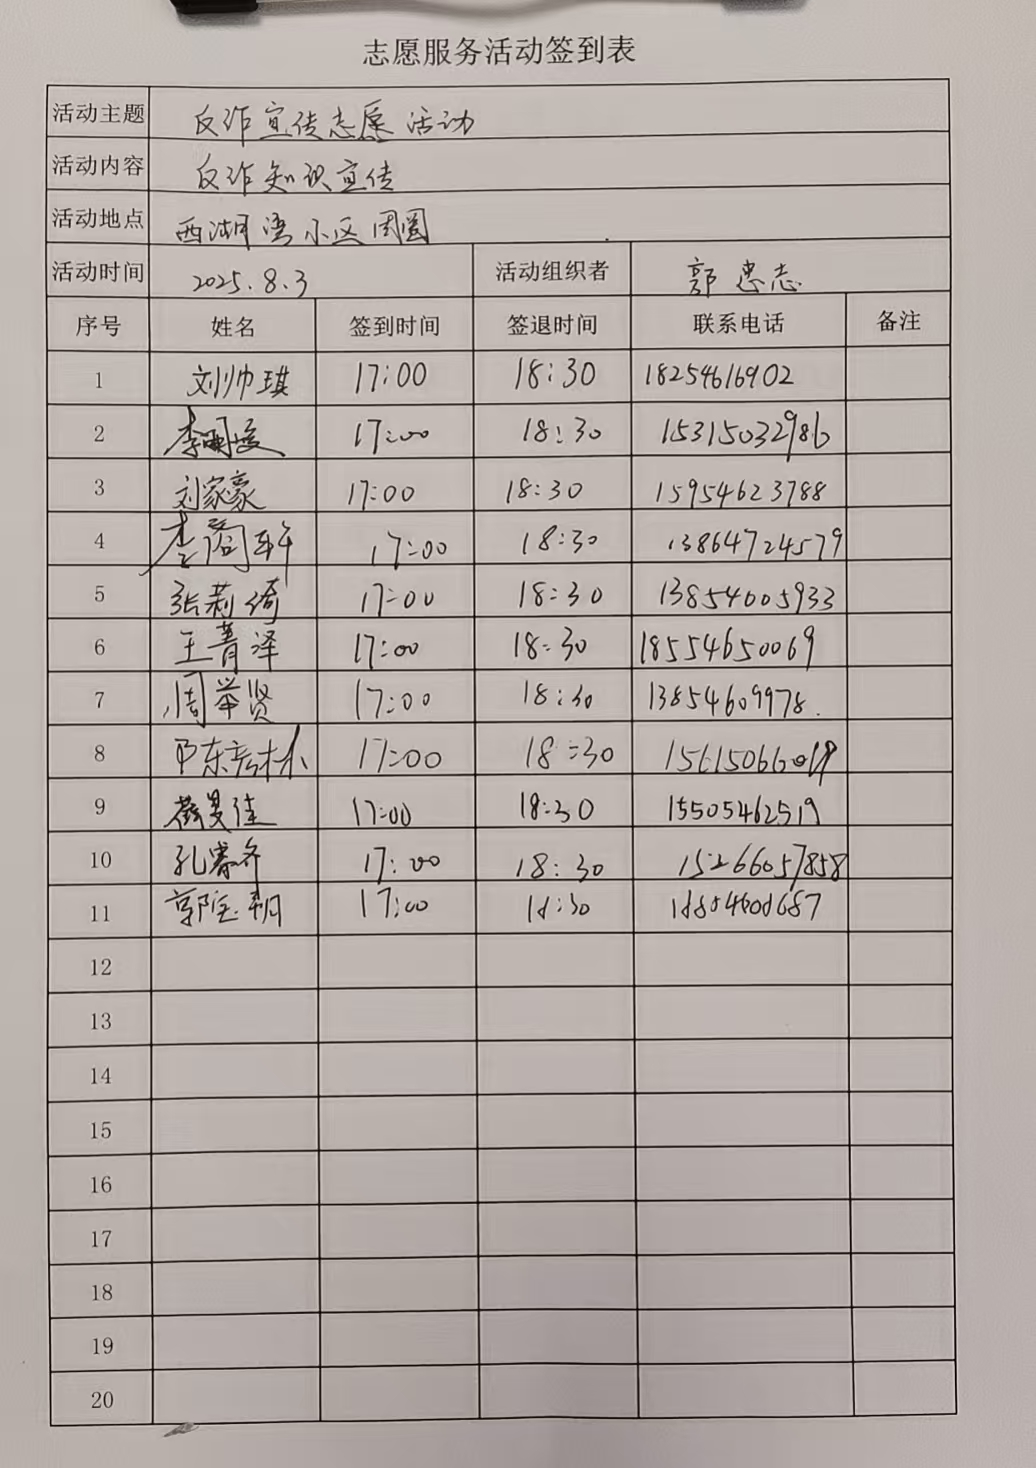 志愿服务活动签到表
活动主题 反诈宣传志愿活动
活动内容 反诈知识宣传
活动地点 西湖湾小区周围
活动时间 2025.8.3 活动组织者 郭忠志
序号 姓名 签到时间 签退时间 联系电话 备注
1 刘帅琪 17:00 18:30 18254616902
2 17:00 18:30 15315032986
3 刘家豪 17:00 18:30 15954623788
4 17:00 18:30 13864724579
5 张莉绮 17:00 18:30 13854605933
6 王菁泽 17:00 18:30 18554650069
7 周举贤 17:00 18:30 13854609978.
8 17:00 18:30
9 17:00 18:30 15505462519
10 17:00 18:30 15266057858
11 17:00 18:30
12
13
14
15
16
17
18
19
20